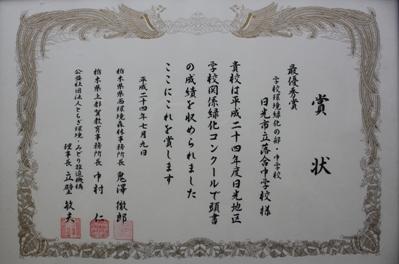 賞状
最優秀賞
学校環境緑化の部・中学校
日光市立落合中学校様
貴校は平成二十四年度日光地区
学校関係緑化コンクールで頭書
の成績を収められました
ここにこれを賞します
平成二十四年七月九日
栃木県県西環境森林事務所長 鬼澤徹郎
栃木県上都賀教育事務所長 中村仁
公益社団法人とちぎ環境・みどり推進機構
理事長 立壁敏夫